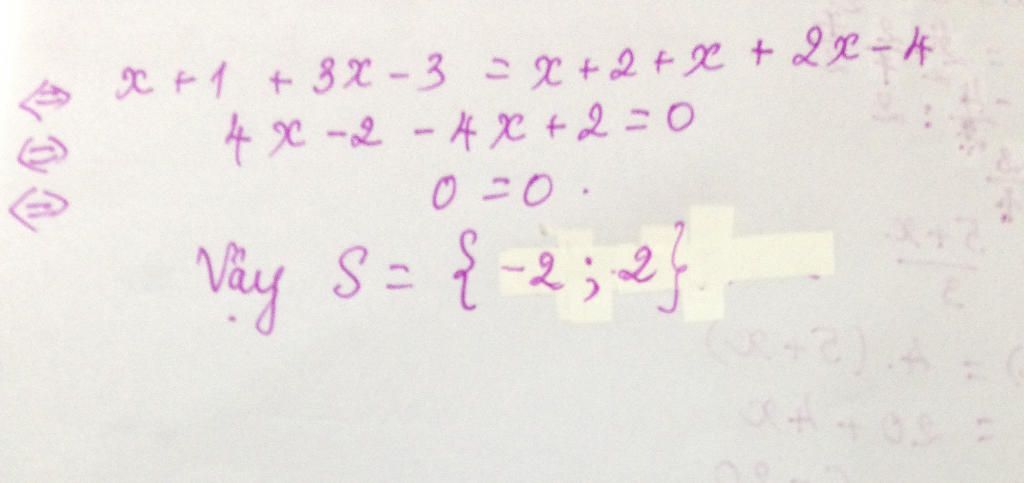 ⇔ x + 1 + 3x - 3 = x + 2 + x + 2x - 4
⇔ 4x - 2 - 4x + 2 = 0
⇔ 0 = 0 .
Vậy S = { -2 ; 2 }